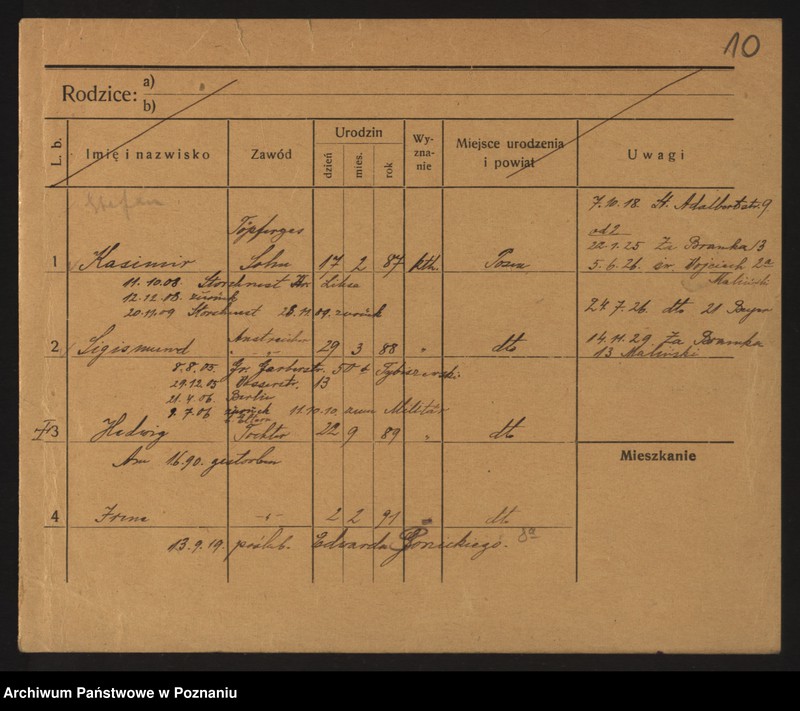 10
Rodzice: a)
b)
L. b. Imię i nazwisko Zawód Urodzin dzień mies. rok Wy-zna-nie Miejsce urodzenia i powiat Uwagi
Stefan
7.10.18. St. Adalbertstr. 9
Töpferges
od 2
22.1.25 Za Bramka 13
1 Kasimir Sohn 17 2 87 kth. Posen
5.6.26. św. Wojciech 2a
11.10.08. Storchnest Kr. Lissa
Maliński
12.12.08. zurück
20.11.09 Storchnest 28.11.09. zurück
24.7.26. dto 21 Beyer
Anstreicher
14.11.29. Za Bramka
2 Sigismund 29 3 88 " dto
13 Maliński
8.8.05. Gr. Gerberstr. 50
29.12.05 13
21.4.06 Berlin
9.7.06 zurück 11.10.10. zum Militär
3 Hedwig Tochter 22 9 89 " dto
Am 16.90. gestorben
Mieszkanie
4 Irena -"- 2 2 91 " dto
13.9.19. poślub. Edwarda
Archiwum Państwowe w Poznaniu